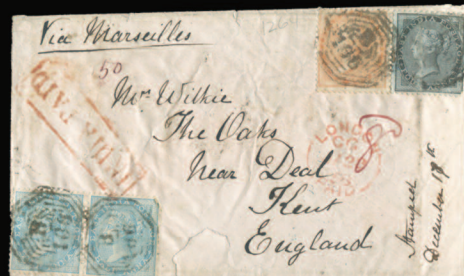 Via Marseilles
50
INDIA PAID
Mrs Wilkie
The Oaks
Near Deal
Kent
England
LONDON
PAID
Stamped
December 19th